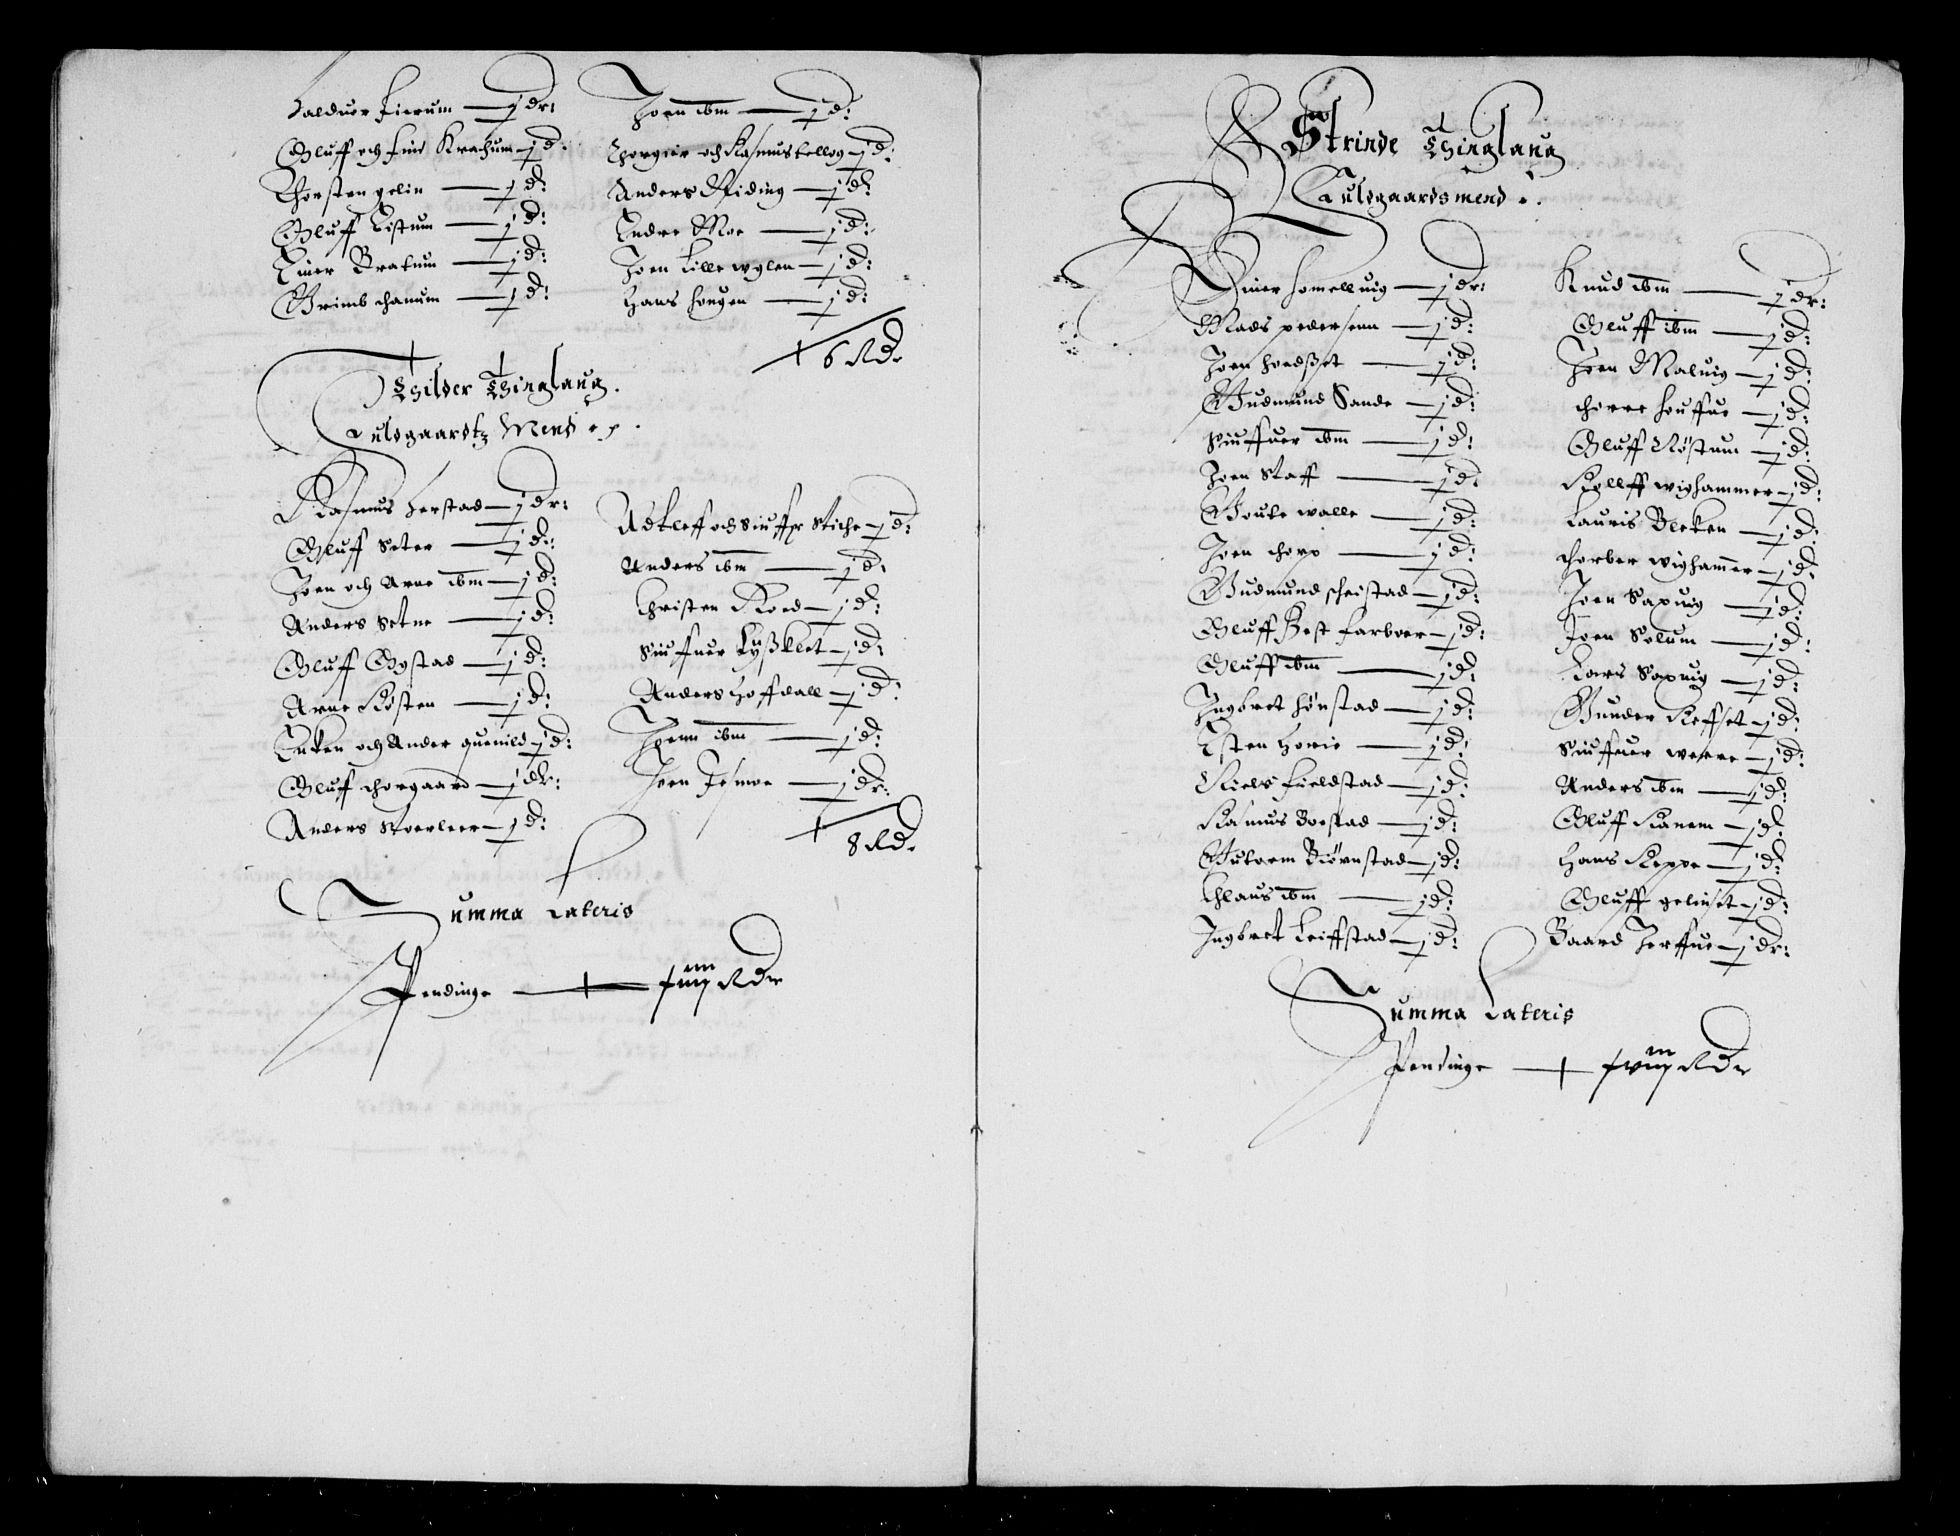 Halduor Kierum — j dr:
Oluff och Find Krachum — j d:
Thorsten gelin — j d:
Oluff Listum — j d:
Einer Bratum — j d:
Grimb chanum — j d:
Joen ibm — j d:
Thorgier och Rasmus kellog — j d:
Anders Riding — j d:
Endre Moe — j d:
Joen Lille wglen — j d:
Hans hougen — j d:
6 Rd.
Thilder Thinglaug.
Fuldgaardtz Mend
Rasmus herstad — j dr:
Oluff Seter — j d:
Joen och Arne ibm — j d:
Anders Setne — j d:
Oluff Opstad — j d:
Arne Rosten — j d:
Encken och Ander quenild — j d:
Oluff chorgaard — j dr:
Anders Stoerleer — j d:
Adtleff och Siuffr Stiche — j d:
Anders ibm — j d:
Christen Roed — j d:
Siuffuer Kyßklet — j d:
Anders hoffdall — j d:
Joenn ibm — j d:
Joen Tesmoe — j dr:
8 Rd.
Summa Lateris
Pendinge — xiiij Rdr
Strinde Thinglaug
Fuldgaardsmend
Einer homelluig — j dr:
Mads pedersenn — j d:
Joen hoedßet — j d:
Gudmund Sande — j d:
Siuffuer ibm — j d:
Joen Staff — j d:
Goute walle — j d:
Joen chorp — j d:
Gudmund scheistad — j d:
Oluff Best farboer — j d:
Oluff ibm — j d:
Ingbret hønstad — j d:
Esten horie — j d:
Niels fieldstad — j d:
Rasmus Boestad — j d:
Gutorm Biørnstad — j d:
Chlaus ibm — j d:
Ingbret Leiffstad — j d:
Knud ibm — j dr:
Oluff ibm — j d:
Joen Maluig — j d:
chorre houffue — j d:
Oluff Røstum — j d:
Rolff wighammer — j d:
Lauris Bleken — j d:
chorber wighammer — j d:
Joen Saxuig — j d:
Joen Solum — j d:
Lars Saxuig — j d:
Gunder Reffset — j d:
Siuffuer werre — j d:
Anders ibm — j d:
Oluff Ranem — j d:
Hans Reppe — j d:
Oluff gelinset — j d:
Baard Torffue — j dr:
Summa Lateris
Pendinge — xviij Rdr